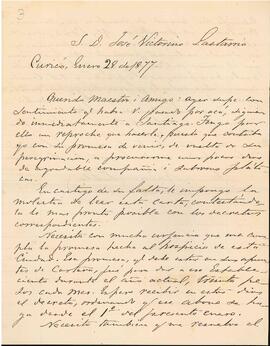 3
S. D. José Victorino Lastarria
Curicó, Enero 28 de 1877.
Querido Maestro i Amigo: Ayer supe con
sentimiento el haber V. pasado por acá, siguien-
do inmediatamente a Santiago. Tengo por
ello un reproche que hacerle. Puesto que contaba
yo con su promesa de venir, de vuelta de su
peregrinacion, a procurarme unos pocos dias
de agradable compañia i sabrosa plática.
En castigo de su falta, le impongo la
molestia de leer esta carta, contestándo-
la lo mas pronto posible con los decretos
correspondientes.
Necesito con mucha urjencia que me cum-
pla la promesa hecha al hospicio de esta
Ciudad. Esa promesa, que debe estar en sus apun-
tes de cartera, fué para dar a ese estableci-
miento durante el año actual, treinta pe-
sos cada mes. Espero recibir en estos dias
el decreto, ordenando que ese abono se ha-
ga desde el 1º del presente enero.
Necesito tambien que me resuelva el